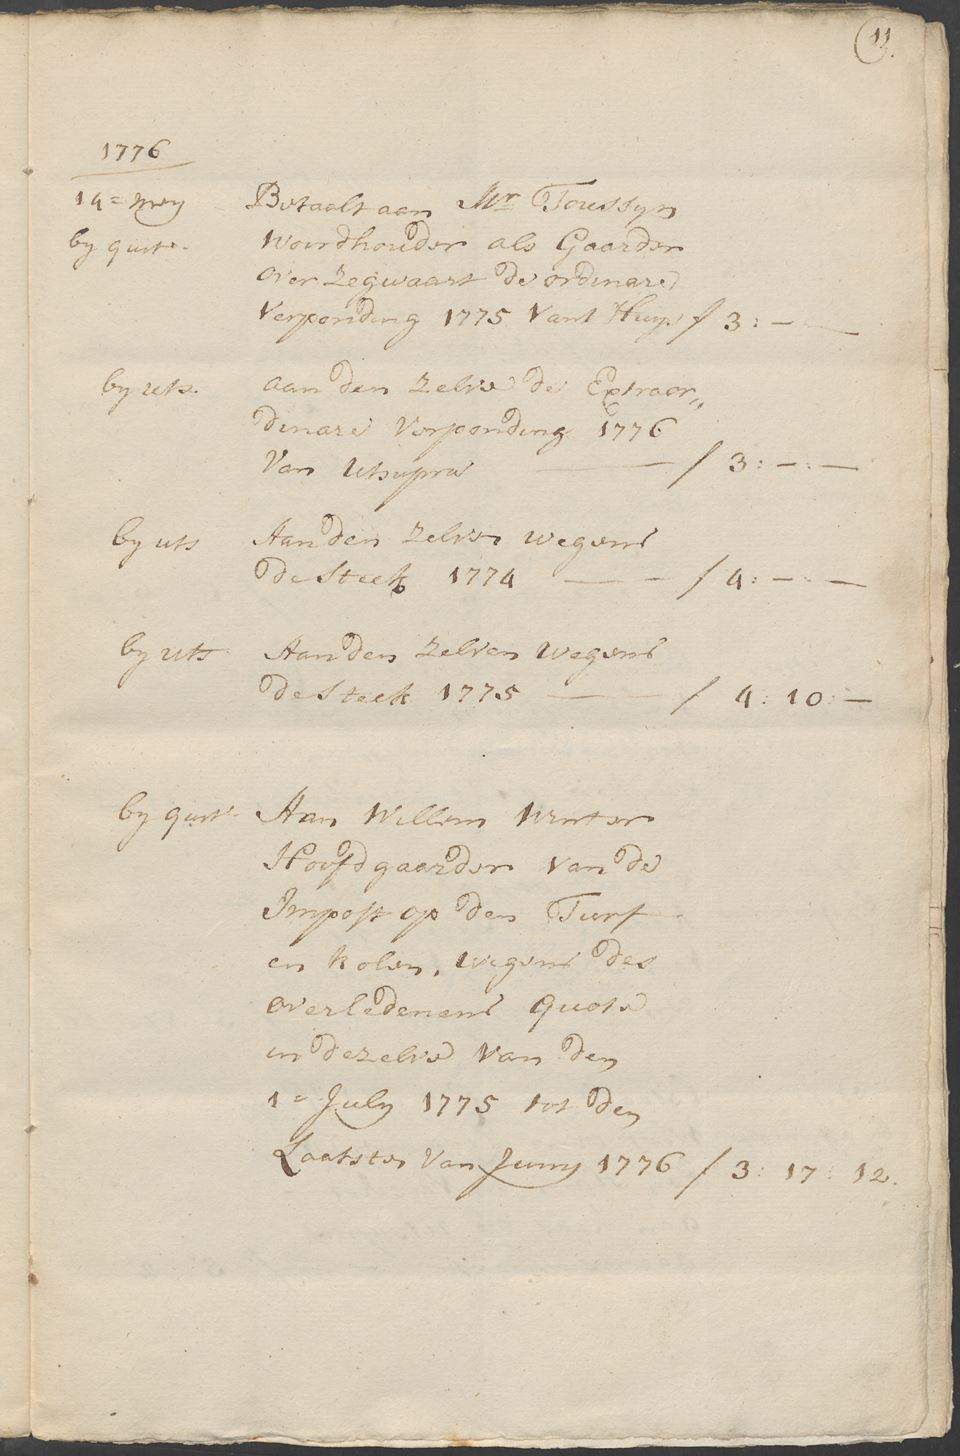 11.
1776
14= mey Betaalt aan Mr Toussyn
by quite. Woordhouder als Gaarder
over Zegwaart de ordinare
Verponding 1775 Vant Huys ƒ 3:—:—
by uts. aan den Zelve de Extraor„
dinare Verponding 1776
Van Utsupra — ƒ 3:—:—
by uts Aan den Zelven wegens
de Steek 1774 — — ƒ 4:—:—
by uts Aan den Zelven wegens
de Steek 1775 — — ƒ 4: 10:—
by quite Aan Willem Winter
Hoofdgaarder van de
Impost op den Turf
en kolen, wegens des
overledenens quote
in dezelve van den
1= July 1775 tot den
Laatsten van Juny 1776 ƒ 3: 17: 12.